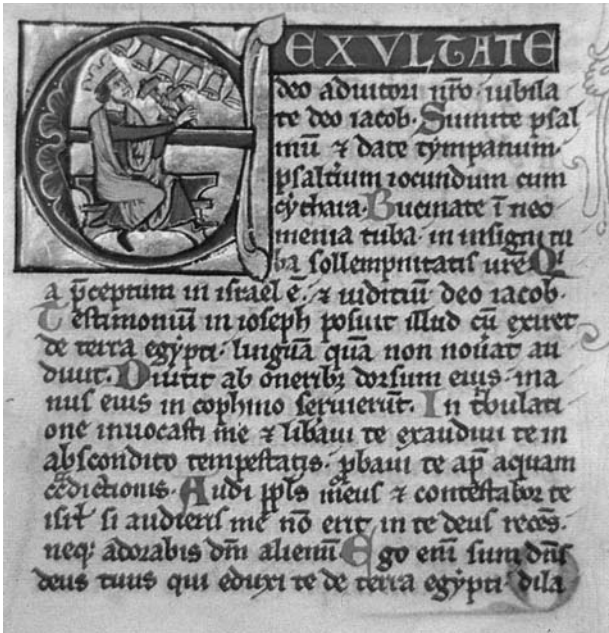 EXULTATE
deo adiutori nr̅o · iubila
te deo iacob · Sumite psal
mu̅ ⁊ date tympanum ·
psalt̅ium iocundum cum
cythara · Bucinate i̅ neo
menia tuba · in insigni tu
ba sollempnitatis ur̅e · Qi
a p̅ceptum in israel e̅ · ⁊ iuditiu̅ deo iacob ·
Testimoniu̅ in ioseph posuit illud cu̅ exiret
de terra egypti · lingua̅ qua̅ non nou̅at au
diuit · Diu̅tit ab oneribꝫ dorsum eius · ma
nus eius in cophino seruieru̅t · In t̅bulati
one inuocasti me ⁊ lib̅aui te exaudiui te in
abscondito tempestatis · p̱baui te ap̅ aquam
ct̅dictionis · Audi pp̅ls meus ⁊ contestabor te
isr̅l si audieris me no̅ erit in te deus rece̅s ·
neqꝫ adorabis dm̅ alienu̅ Ego eni̅ sum dn̅s
deus tuus qui eduxi te de terra egypti · dila